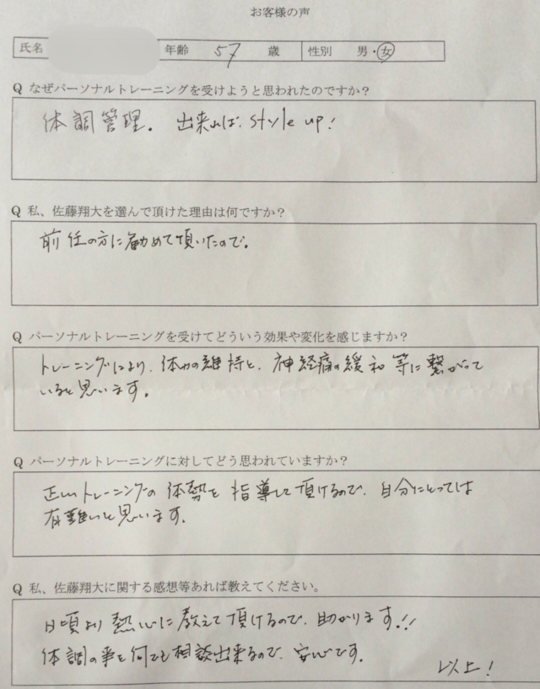 お客様の声
氏名 年齢 57 歳 性別 男・女
Q なぜパーソナルトレーニングを受けようと思われたのですか？
体調管理。出来れば、style up!
Q 私、佐藤翔大を選んで頂けた理由は何ですか？
前任の方に勧めて頂いたので。
Q パーソナルトレーニングを受けてどういう効果や変化を感じますか？
トレーニングにより、体力の維持と、神経痛の緩和等に繋がって
いると思います。
Q パーソナルトレーニングに対してどう思われていますか？
正しいトレーニングの体勢を指導して頂けるので、自分にとっては
有難いと思います。
Q 私、佐藤翔大に関する感想等あれば教えてください。
日頃より熱心に教えて頂けるので、助かります!!
体調の事を何でも相談出来るので、安心です。
以上!